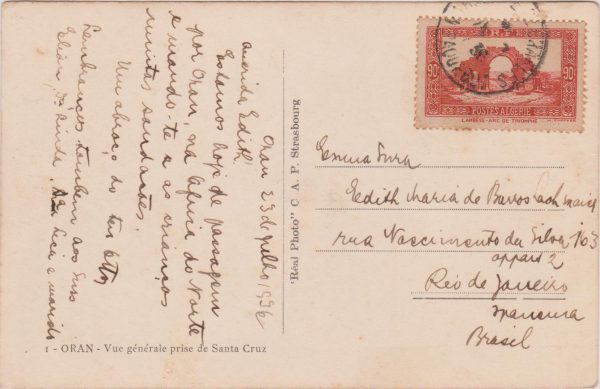 Oran 23 de julho 1936
Querida Edith
Estamos hoje de passagem
por Oran, na Africa do Norte
e mando-te e as crianças
muitas saudades.
Um abraço do teu Otto
Lembranças tambem aos Snrs
Elian, Da. Linda, Lucia e marido
1 - ORAN - Vue générale prise de Santa Cruz
"Réal Photo" C A P. Strasbourg
R F
90
90
POSTES ALGÉRIE
LAMBÈSE-ARC DE TRIOMPHE
Exma Snra
Edith Maria de Barros
rua Nascimento da Silva 103
appart 2
Rio de Janeiro
Ipanema
Brasil